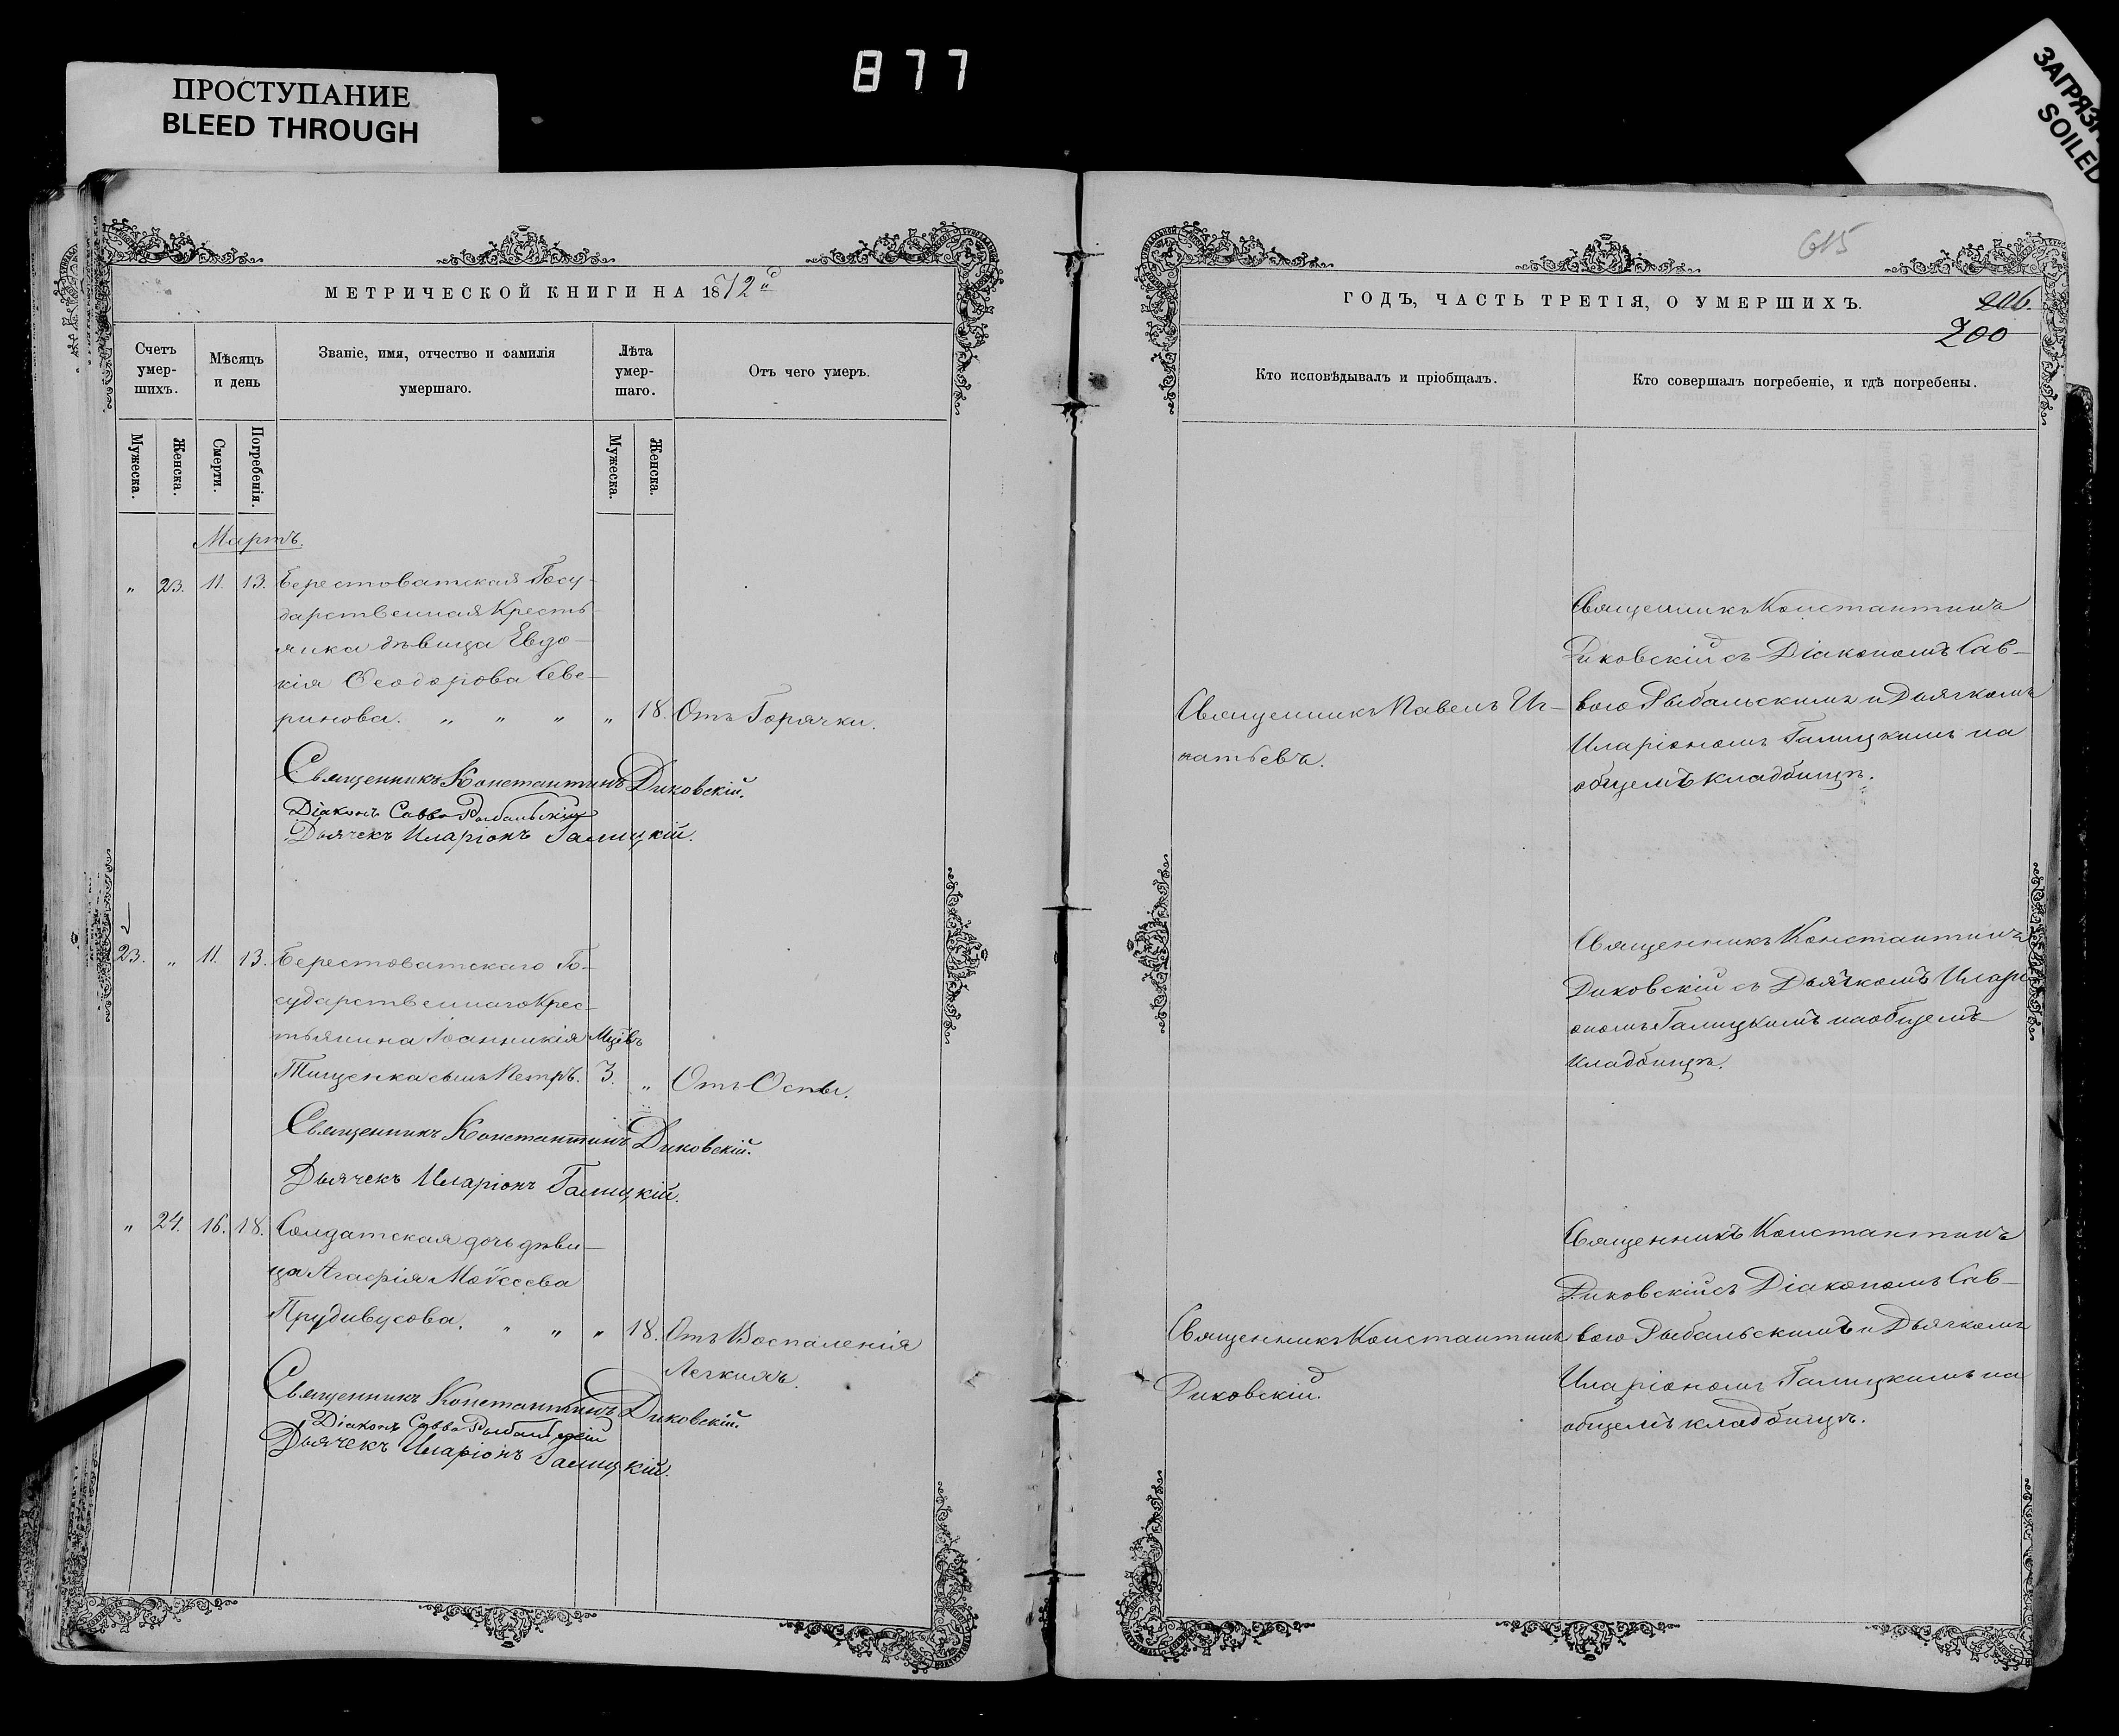 877
ПРОСТУПАНИЕ
BLEED THROUGH
SOILED
615
МЕТРИЧЕСКОЙ КНИГИ НА 1872й
Счетъ умер-шихъ.
Мѣсяцъ и день
Званіе, имя, отчество и фамилія умершаго.
Лѣта умер-шаго.
Отъ чего умеръ.
Мужеска.
Женска.
Смерти.
Погребенія.
Мужеска.
Женска.
Мартъ.
" 23. 11. 13. Берестоватская Госу-
дарственная Кресть-
янка дѣвица Евдо-
кія Ѳеодорова Севе-
ринова. " " " " 18. Отъ Горячки.
Священникъ Константинъ Диковскій.
Діаконъ Савва Рыбальскій
Дьячекъ Иларіонъ Галицкій.
23. " 11. 13. Берестоватскаго Го-
сударственнаго Крес-
тьянина Іоанникія Мцевъ
Тищенка сынъ Петръ. 3. " Отъ Оспы.
Священникъ Константинъ Диковскій.
Дьячекъ Иларіонъ Галицкій.
" 24. 16. 18. Солдатская дочь дѣви-
ца Агафія Моѵсеева
Прудивусова. " " " 18. Отъ Воспаленія
Легкихъ.
Священникъ Константинъ Диковскій.
Діаконъ Савва Рыбальскій
Дьячекъ Иларіонъ Галицкій.
ГОДЪ, ЧАСТЬ ТРЕТІЯ, О УМЕРШИХЪ.
206.
200
Кто исповѣдывалъ и пріобщалъ.
Кто совершалъ погребеніе, и гдѣ погребены.
Священникъ Павелъ Иг-
натьевъ.
Священникъ Константинъ
Диковскій съ Діакономъ Сав-
вою Рыбальскимъ и Дьячкомъ
Иларіономъ Галицкимъ на
общемъ кладбищѣ.
Священникъ Константинъ
Диковскій съ Дьячкомъ Илари
ономъ Галицкимъ на общемъ
кладбищѣ.
Священникъ Константинъ
Диковскій.
Священникъ Константинъ
Диковскій съ Діакономъ Сав-
вою Рыбальскимъ и Дьячкомъ
Иларіономъ Галицкимъ на
общемъ кладбищѣ.